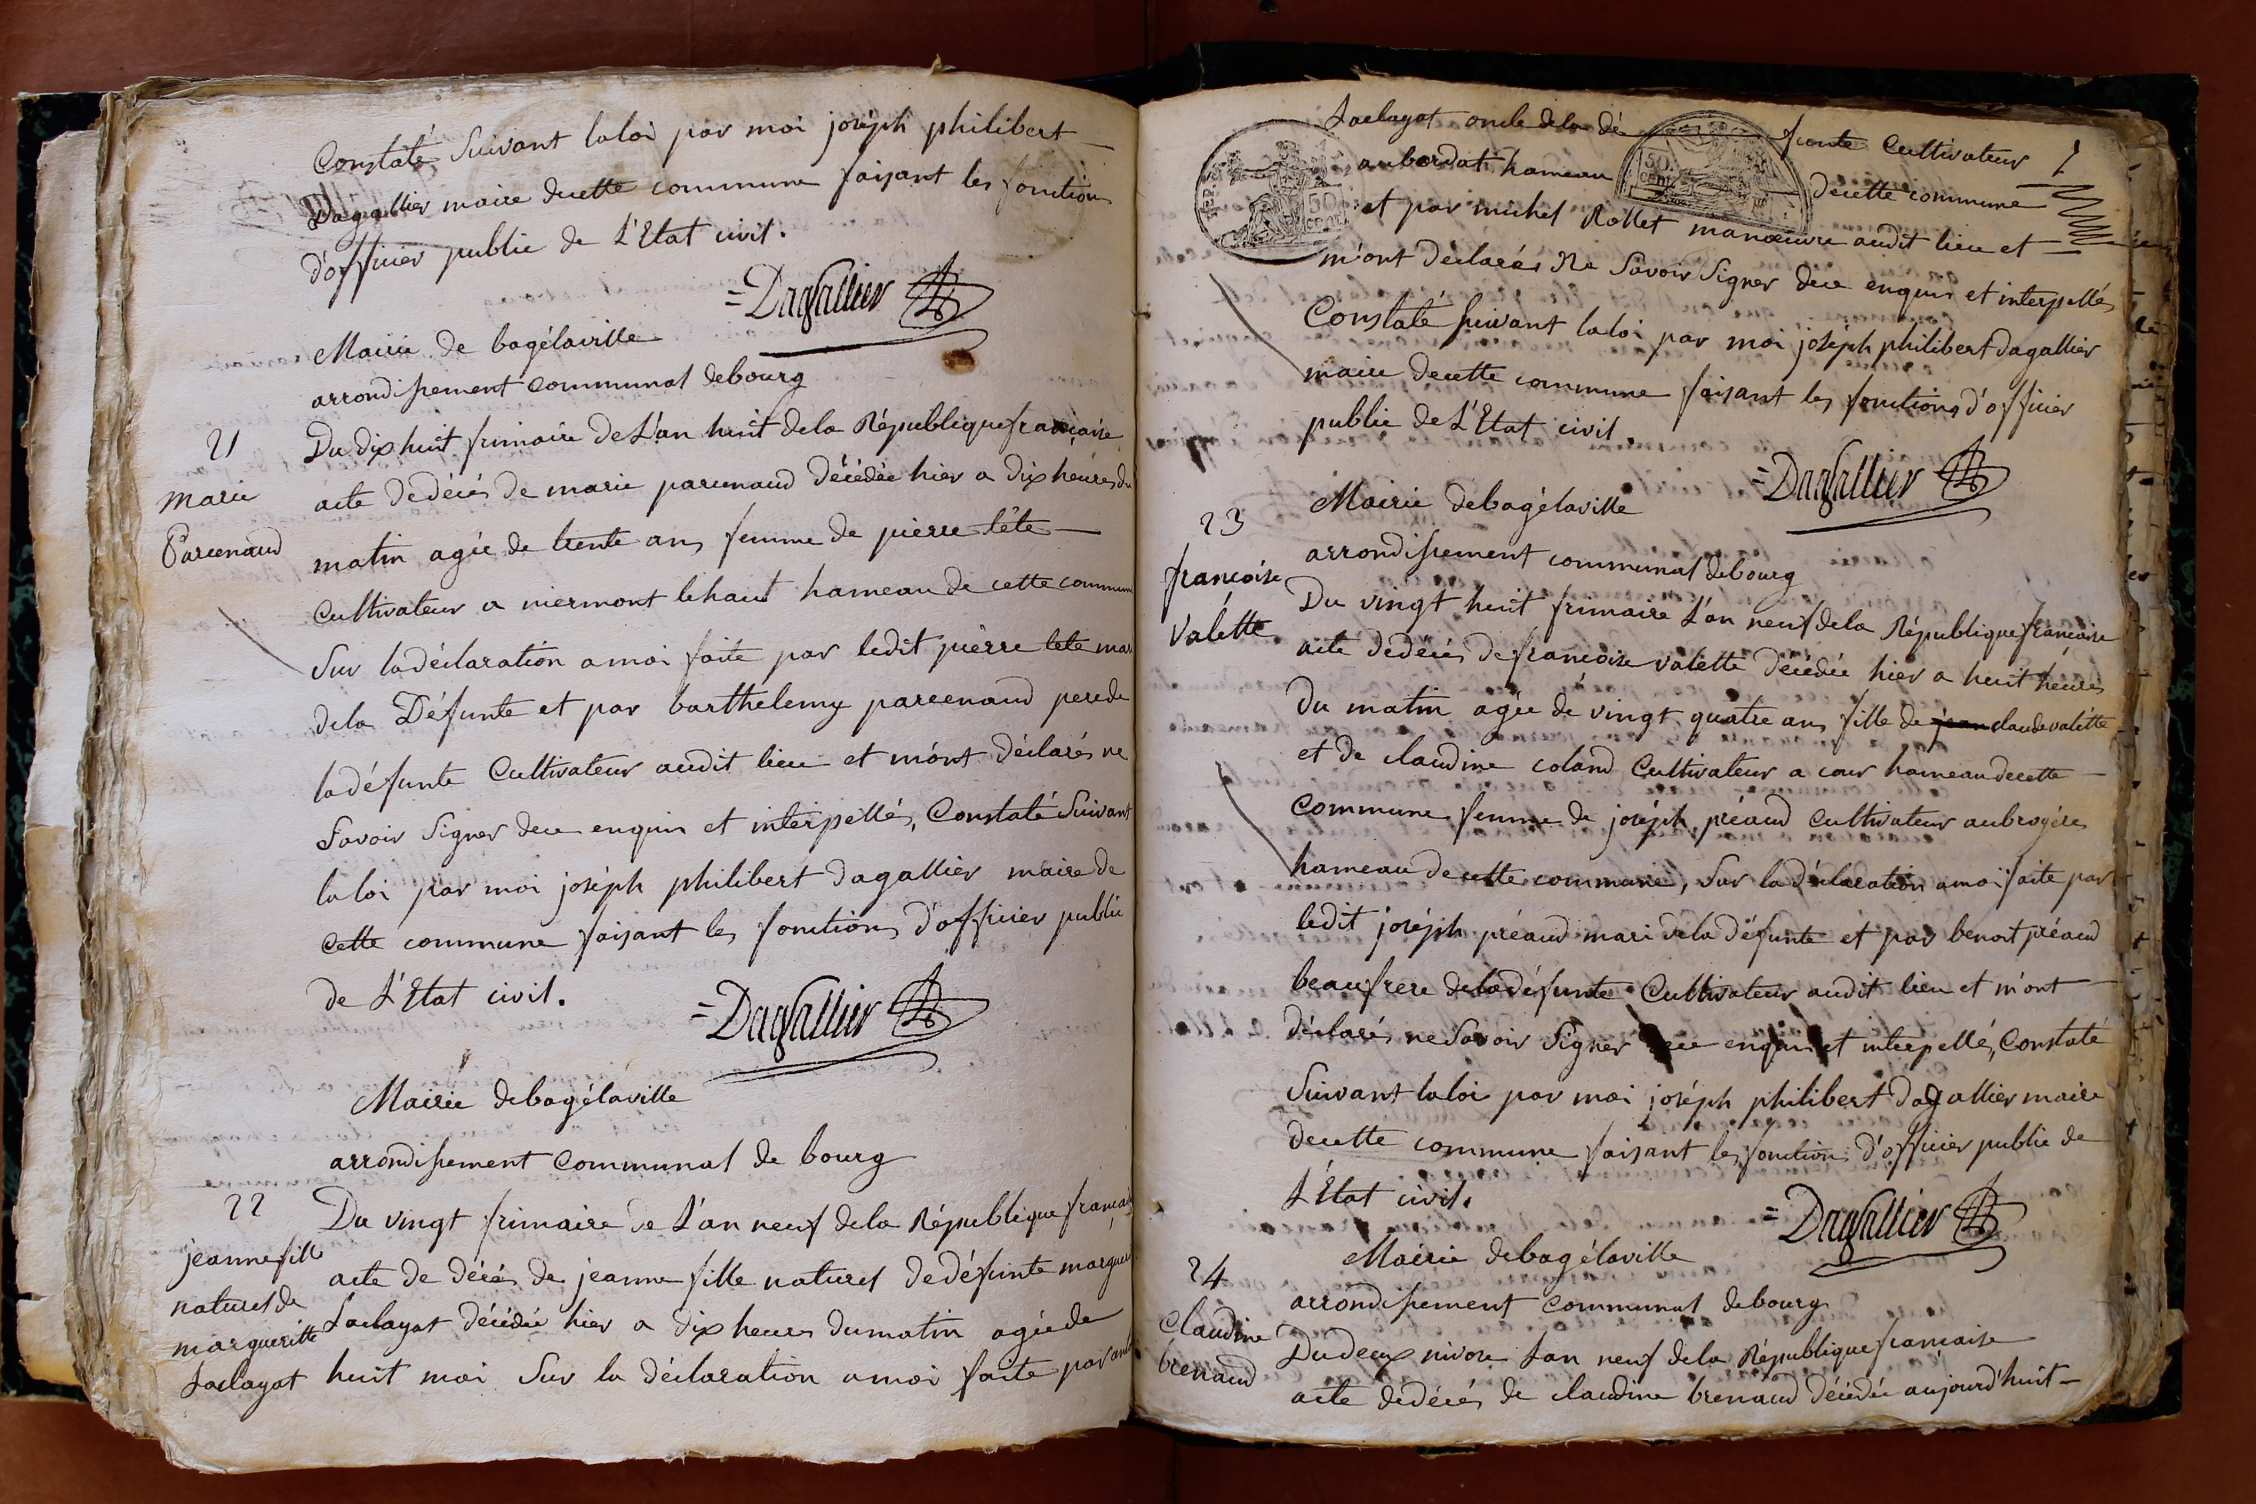 Constaté Suivant la loi par moi joséph philibert
Dagallier maire de cette commune faisant les fonctions
d'officier public de L'Etat civil.
=Dagallier
Mairie de bagélaville
arrondissement communal de bourg
21
marie
Parcenaud
Du dix huit frimaire de L'an huit de la République francaise
acte de décés de marie parcenaud décédée hier a dix heures du
matin agée de trente ans femme de pierre tête
Cultivateur a niermont le haut hameau de cette commune
Sur la déclaration a moi faite par ledit pierre tete mari
de la Défunte et par barthelemy parcenaud pere de
la défunte Cultivateur audit lieu et m'ont déclarés ne
Savoir Signer de ce enquis et interpellés, Constaté Suivant
la loi par moi joséph philibert dagallier maire de
Cette commune faisant les fonctions d'officier public
de L'Etat civil.
=Dagallier
Mairie de bagélaville
arrondissement communal de bourg
22
jeanne fille
naturel de
margueritte
Laclayat
Du vingt frimaire de L'an neuf de la République francaise
acte de décés de jeanne fille naturel de défunte
Laclayat décédée hier a dix heures du matin agée de
huit moi Sur la déclaration a moi faite par
Laclayat oncle de la défunte Cultivateur
au bordat hameau de cette commune
et par michel Rollet manœuvre audit lieu et
m'ont déclarés Ne Savoir Signer de ce enquis et interpellés
Constaté Suivant la loi par moi joséph philibert dagallier
maire de cette commune faisant les fonctions d'officier
public de L'Etat civil.
50 CENT
50. CENT.
=Dagallier
Mairie de bagélaville
arrondissement communal de bourg
23
francoise
Valette
Du vingt huit frimaire L'an neuf de la République francaise
acte de décés de francoise valette décédée hier a huit heures
Du matin agée de vingt quatre ans fille de jean claude valette
et de claudine coland Cultivateur a cour hameau de cette
Commune femme de joséph préaud Cultivateur au brogére
hameau de cette commune, Sur la déclaration a moi faite par
ledit joséph préaud mari de la défunte et par benoit préaud
beaufrere de la défunte Cultivateur audit lieu et m'ont
déclarés ne Savoir Signer de ce enquis et interpellés, Constaté
Suivant la loi par moi joséph philibert dagallier maire
de cette commune faisant les fonctions d'officier public de
L'Etat civil.
=Dagallier
Mairie de bagélaville
arrondissement communal de bourg
24
Claudine
brenaud
Du deux nivose L'an neuf de la République francaise
acte de décés de claudine brenaud décédée aujourd'huit